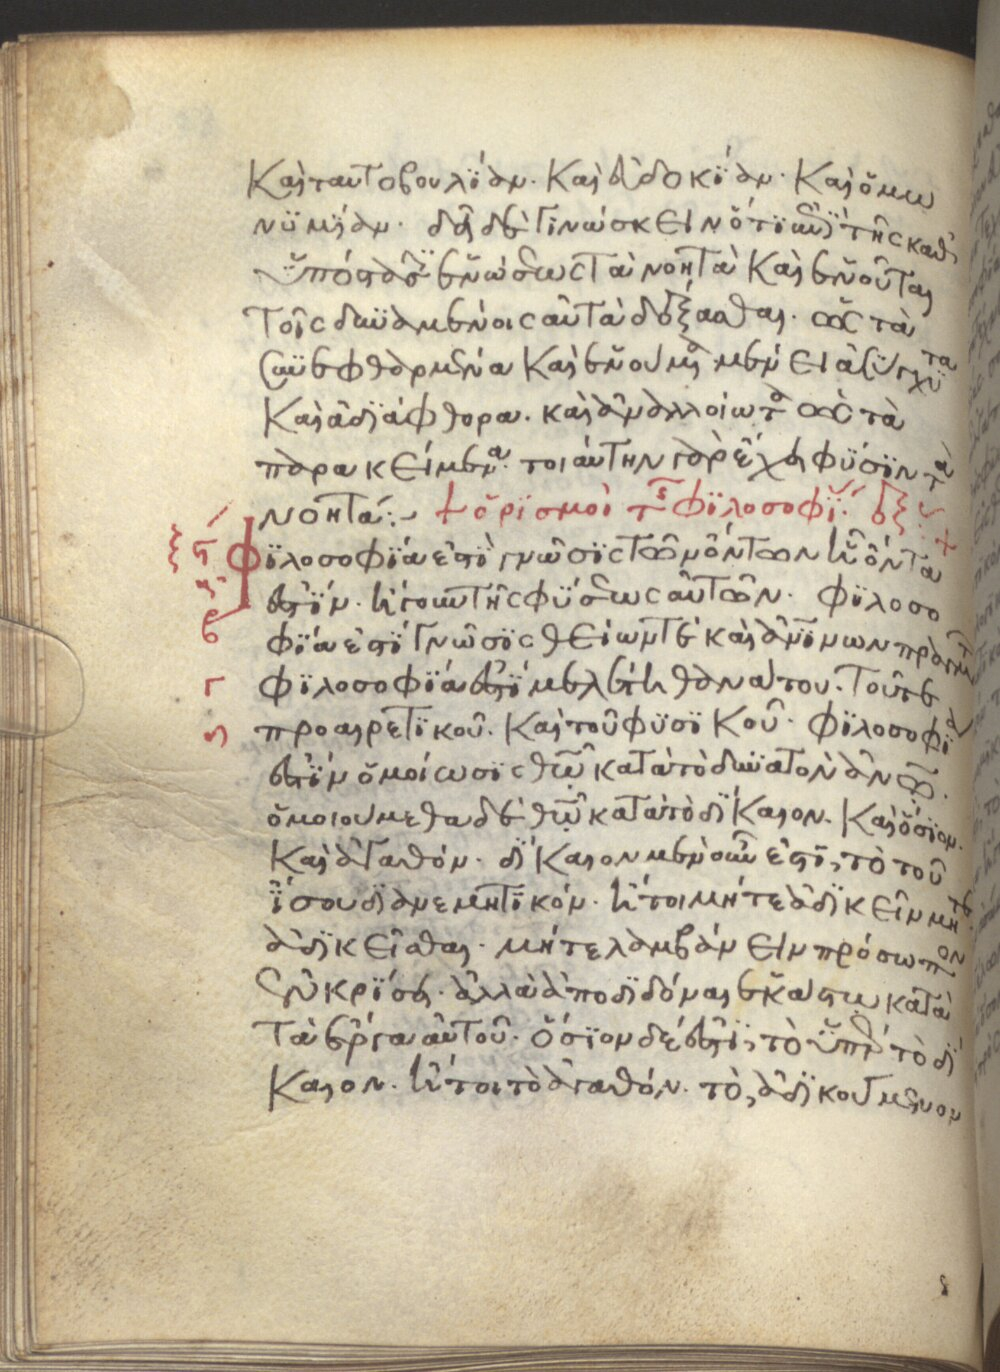 Καὶ ταυτοβουλΐαν· Καὶ εὐδοκΐαν· Καὶ ὁμω
νϋμΐαν· δεῖ δὲ γινώσκειν ὅτϊ τῆς καθ
ὑπόστασϊν ἑνώσεως τὰ νοητὰ Καὶ ἑνοῦται
τοῖς δυναμένοις αὐτὰ δέξασθαι· ὡς τὰ
συνεφθαρμένα Καὶ ἑνούμενα μένει ἀσύγχϋτα
Καὶ ἀδϊάφθορα· καὶ ἀναλλοίωτα ὡς τὰ
παρακείμενα· τοιαύτην γὰρ ἔχει φύσϊν τὰ
νοητά:– ὁρϊσμοὶ τῆς φϊλοσοφΐας ἕξ
Φϊλοσοφϊα ἐστὶ γνῶσϊς τῶν ὄντων ἧ ὄντα
ἐστΐν· ἤγουν τῆς φύσεως αὐτῶν· φϊλοσο
φΐα ἐστῒ γνῶσϊς θείων τὲ καὶ ἀνϊνων πραγμάτ
φϊλοσοφΐα ἐστῒ μελέτη θανάτου· τοῦ τε
προαιρετϊκοῦ· Καὶ τοῦ φϋσϊκοῦ· φϊλοσοφΐα
ἐστΐν ὁμοίωσϊς θῶ κατὰ τὸ δυνατὸν ἀνῶ·
ὁμοιούμεθα δὲ θῶ κατὰ τὸ δΐκαιον· Καὶ ὅσϊον·
Καὶ ἀγαθόν· δΐκαιον μὲν οὖν ἐστϊ, τὸ τοῦ
ἴσου διανεμητϊκόν· ἤτοι μήτε ἀδϊκεῖν μήτε
ἀδϊκεῖσθαι· μήτε λαμβάνειν πρόσωπον
ἐν κρΐσει· ἀλλὰ ἀποδϊδόναι ἑκάστω κατὰ
τὰ ἔργα αὐτοῦ· ὅσϊον δέ ἐστϊ, τὸ ὑπὲρ τὸ δΐ
Καιον· ἤτοι τὸ ἀγαθόν· τὸ, ἀδϊκούμενον